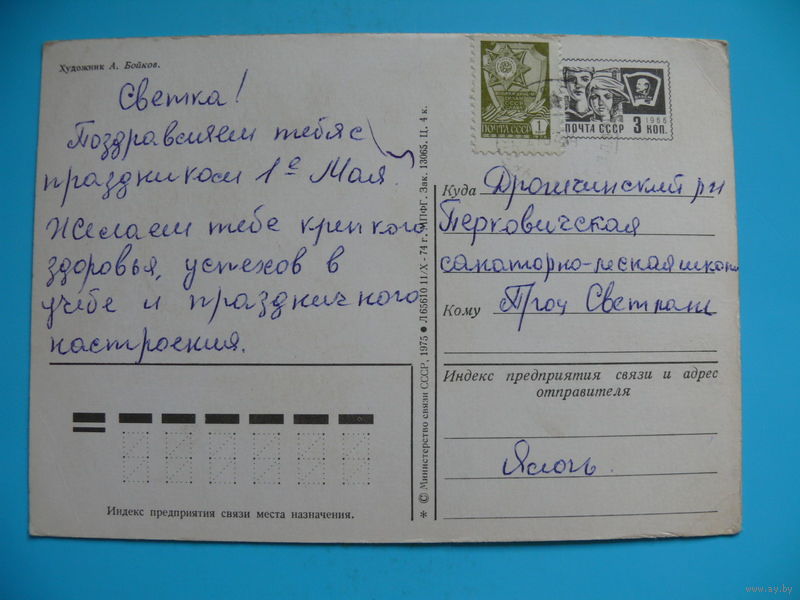 Художник А. Бойков.
Светка!
Поздравляем тебя с
праздником 1е Мая.
Желаем тебе крепкого
здоровья, успехов в
учебе и праздничного
настроения.
Индекс предприятия связи места назначения.
* © Министерство связи СССР, 1975 ● Л 65610 11/X-74 г., МПФГ. Зак. 13065. Ц. 4 к.
ПОЧТА СССР 1
1966
ПОЧТА СССР 3 КОП.
Куда Дрогичинский р-н
Перковичская
санаторно-лесная школа
Кому Проц Светлане
Индекс предприятия связи и адрес
отправителя
www.ay.by